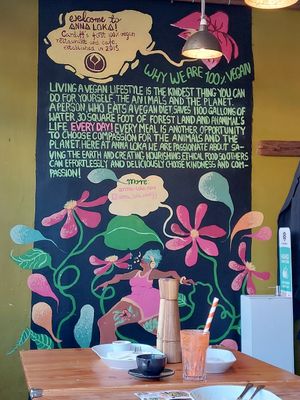 Welcome to
ANNA LOKA!
Cardiff's first 100% vegan
restaurant and cafe,
established in 2015
WHY WE ARE 100% VEGAN
LIVING A VEGAN LIFESTYLE IS THE KINDEST THING YOU CAN
DO FOR YOURSELF, THE ANIMALS AND THE PLANET.
A PERSON WHO EATS A VEGAN DIET SAVES 1100 GALLONS OF
WATER, 30 SQUARE FOOT OF FOREST LAND AND 1 ANIMALS
LIFE EVERY DAY! EVERY MEAL IS ANOTHER OPPORTUNITY
TO CHOOSE COMPASSION FOR THE ANIMALS AND THE
PLANET. HERE AT ANNA LOKA WE ARE PASSIONATE ABOUT SA-
VING THE EARTH AND CREATING NOURISHING ETHICAL FOOD SO OTHERS
CAN EFFORTLESSLY AND DELICIOUSLY CHOOSE KINDNESS AND COM-
PASSION!
more: